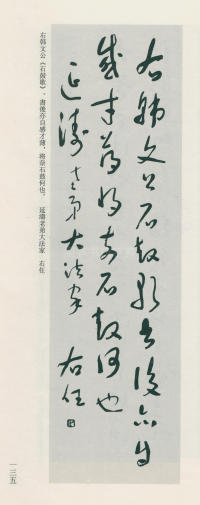 右韩文公石鼓歌书后亦自
感才薄将奈石鼓何也
延涛老弟大法家 右任
右韩文公《石鼓歌》，書後亦自感才薄，將奈石鼓何也。 延濤老弟大法家 右任
一三五